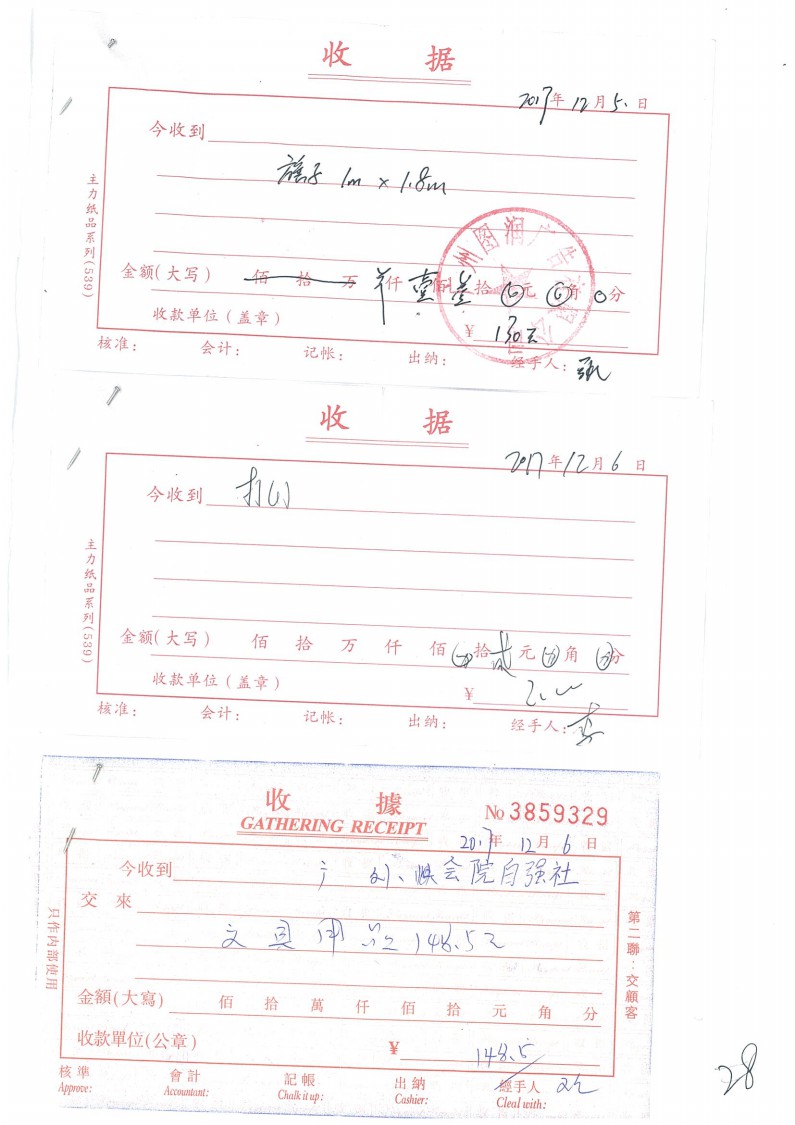 收 据
2017年12月5日
今收到
旗子 1m × 1.8m
主力纸品系列(539)
金额(大写) 佰 拾 万 仟 壹佰 叁拾 0元 0角 0分
收款单位(盖章) ¥ 130元
核准: 会计: 记帐: 出纳: 经手人:
收 据
2017年12月6日
今收到 打印
主力纸品系列(539)
金额(大写) 佰 拾 万 仟 佰 拾 贰元 角 分
收款单位(盖章) ¥
核准: 会计: 记帐: 出纳: 经手人: 李
收 據
GATHERING RECEIPT
No 3859329
2017年12月6日
今收到 会院自强社
交 來
文具用品 148.5元
只作内部使用
第二聯:交顧客
金額(大寫) 佰 拾 萬 仟 佰 拾 元 角 分
收款單位(公章) ¥ 148.5
核準 會計 記帳 出納 經手人
Approve: Accountant: Chalk it up: Cashier: Cleal with:
28